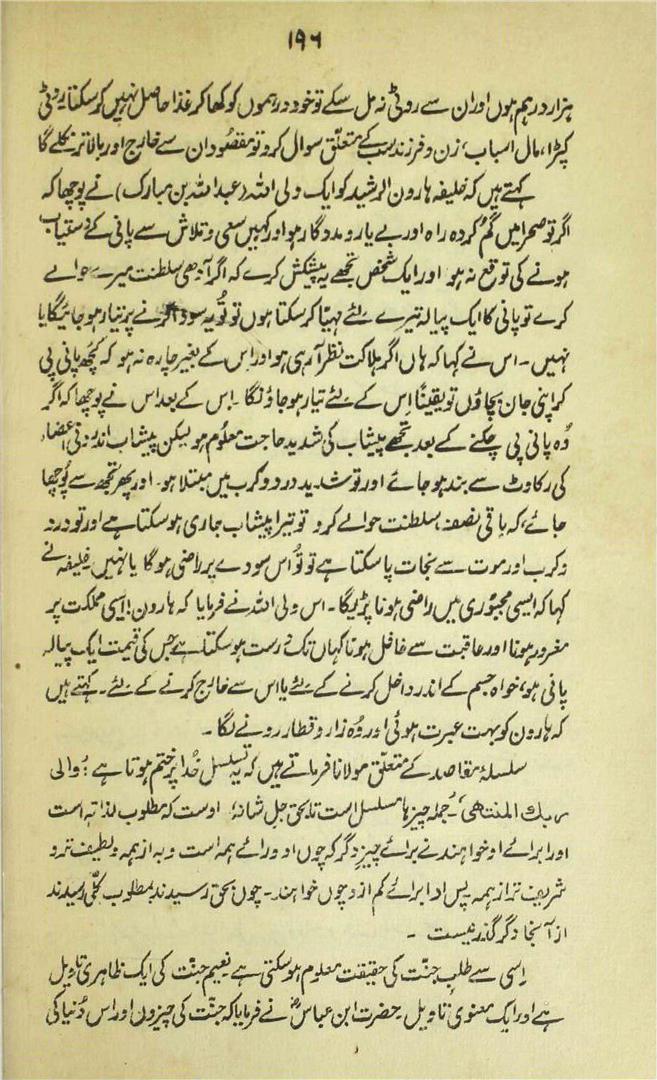 ۱۹۶
ہزار درہم ہوں اور ان سے روٹی نہ مل سکے تو خود درہموں کو کھا کر غذا حاصل نہیں کر سکتا۔ روٹی
کپڑا، مال اسباب، زن و فرزند سب کے متعلق سوال کرو تو مقصود ان سے خارج اور بالاتر نکلے گا
کہتے ہیں کہ خلیفہ ہارون الرشید کو ایک ولی اللہ (عبداللہ بن مبارک) نے پوچھا کہ
اگر تو صحرا میں گم کردہ راہ اور بے یار و مددگار ہو اور کہیں سعی و تلاش سے پانی کے دستیاب
ہونے کی توقع نہ ہو اور ایک شخص تجھے یہ پیشکش کرے کہ اگر آدھی سلطنت میرے حوالے
کرے تو پانی کا ایک پیالہ تیرے لئے مہیا کر سکتا ہوں تو تُو یہ سودا کرنے پر تیار ہو جائیگا یا
نہیں۔ اس نے کہا کہ ہاں اگر ہلاکت نظر آ رہی ہو اور اس کے بغیر چارہ نہ ہو کہ کچھ پانی پی
کر اپنی جان بچاؤں تو یقیناً اس کے لئے تیار ہو جاؤنگا۔ اس کے بعد اس نے پوچھا کہ اگر
وُہ پانی پی چکنے کے بعد تجھے پیشاب کی شدید حاجت معلوم ہو لیکن پیشاب اندرونی اعضاء
کی رکاوٹ سے بند ہو جائے اور تو شدید درد و کرب میں مبتلا ہو۔ اور پھر تجھ سے پُوچھا
جائے کہ باقی نصف سلطنت حوالے کرو تو تیرا پیشاب جاری ہو سکتا ہے اور تو درد
و کرب اور موت سے نجات پا سکتا ہے تو تُو اس سودے پر راضی ہوگا یا نہیں۔ خلیفہ نے
کہا کہ ایسی مجبوری میں راضی ہونا پڑیگا۔ اس ولی اللہ نے فرمایا کہ ہارون! ایسی مملکت پر
مغرور ہونا اور عاقبت سے غافل ہونا کہاں تک درست ہو سکتا ہے جس کی قیمت ایک پیالہ
پانی ہو، خواہ جسم کے اندر داخل کرنے کے لئے یا اس سے خارج کرنے کے لئے۔ کہتے ہیں
کہ ہارون کو بہت عبرت ہوئی اور وُہ زار و قطار رونے لگا۔
سلسلۂ مقاصد کے متعلق مولانا فرماتے ہیں کہ یہ تسلسل خُدا پر ختم ہوتا ہے: والی
ربك المنتھی۔ جملہ چیزہا مسلسل است تا بحق جل شانہ، اوست کہ مطلوب لذاتہ است
اور ابرائے او خواہند نے برائے چیز دگر کہ چوں او ورائے ہمہ است و بہ از ہمہ و لطیف تر و
شریف تر از ہمہ پس او را برائے کم از و چوں خواہند۔ چوں بحق رسیدند بمطلوب کلّی رسیدند
از آنجا دگر گذر نیست ۔
اِسی سے طلب جنّت کی حقیقت معلوم ہو سکتی ہے۔ نعیم جنّت کی ایک ظاہری تاویل
ہے اور ایک معنوی تاویل۔ حضرت ابن عباسؓ نے فرمایا کہ جنّت کی چیزوں اور اس دُنیا کی